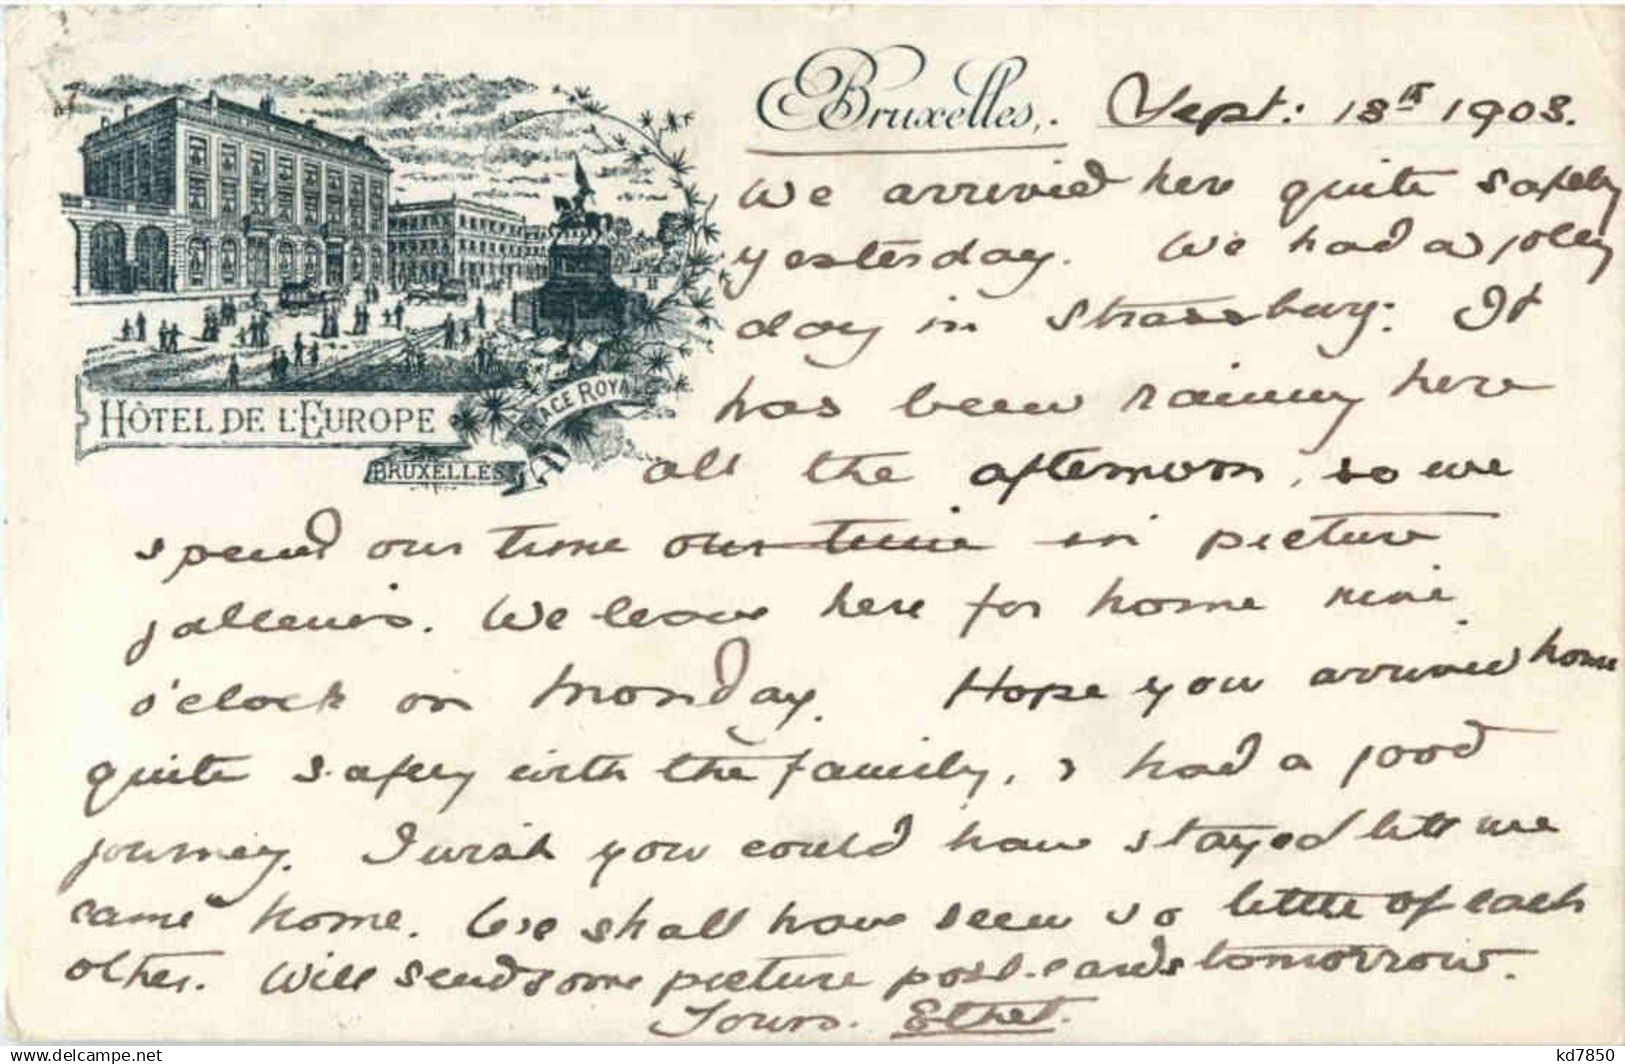 Bruxelles, Sept: 13th 1903.
We arrived here quite safely
yesterday. We had a jolly
day in Strassburg. It
has been raining here
HÔTEL DE L'EUROPE
PLACE ROYALE
BRUXELLES
all the afternoon, so we
spend our time our time in picture
galleries. We leave here for home nine
o'clock on Monday. Hope you arrived home
quite safely with the family, & had a good
journey. I wish you could have stayed till we
came home. We shall have seen so little of each
other. Will send some picture post-cards tomorrow.
Yours. Ethel.
kd7850